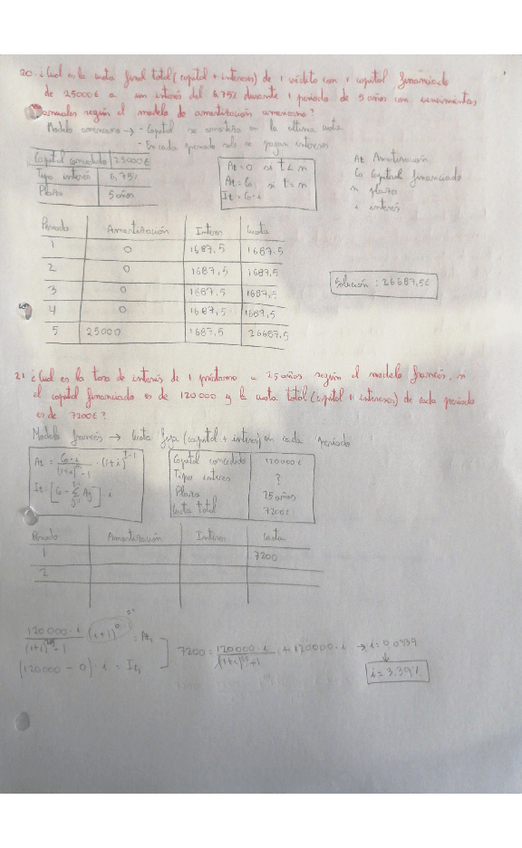 20. ¿Cual es la cuota final total (capital + intereses) de 1 crédito con 1 capital financiado
de 25000€ a un interés del 6,75% durante 1 periodo de 5 años con vencimientos
anuales según el modelo de amortización americano?
Modelo americano → - Capital se amortiza en la ultima cuota
- En cada periodo solo se pagan intereses
Capital concedido 25000€
Tipo interés 6,75%
Plazo 5 años
At = 0 si t < n
At = Co si t = n
It = Co · i
At Amortización
Co Capital financiado
n plazo
i interés
Periodo Amortización Interes Cuota
1 0 1687.5 1687.5
2 0 1687.5 1687.5
3 0 1687.5 1687.5
4 0 1687.5 1687.5
5 25000 1687.5 26687.5
Solución: 26687,5€
21. ¿Cual es la tasa de interés de 1 préstamo a 25 años según el modelo francés, si
el capital financiado es de 120000 y la cuota total (capital + intereses) de cada periodo
es de 7200€?
Modelo francés → Cuota fija (capital + interes) en cada periodo
At = Co · i / (1+i)ⁿ - 1 · (1+i)^t-1
It = [Co - Σ Aj] · i
Capital concedido 120000€
Tipo interes ?
Plazo 25 años
Cuota total 7200€
Periodo Amortización Interes Cuota
1 7200
2
120000 · i / (1+i)²⁵ - 1 · (1+i)⁰ = At₁
(120000 - 0) · i = It₁
7200 = 120000 · i / (1+i)²⁵ + 1 + 120000 · i → i = 0,0339
i = 3.39%